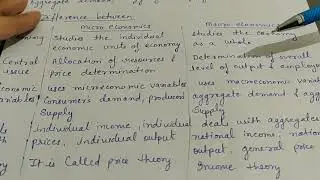 aggregate demand,
Difference between
micro economics
macro economics
Studies the individual
economic units of economy
studies the economy
as a whole
Central
issue
Allocation of resources &
price determination
Determination of overall
level of output & employm
economic
variables
uses microeconomic variables
Consumer's demand, producer's
Supply
uses macroeconomic variab
aggregate demand & agg
Supply
individual income, individual
prices, individual output
deals with aggregates
national income, nation
output, general price
It is called price theory
Income theory